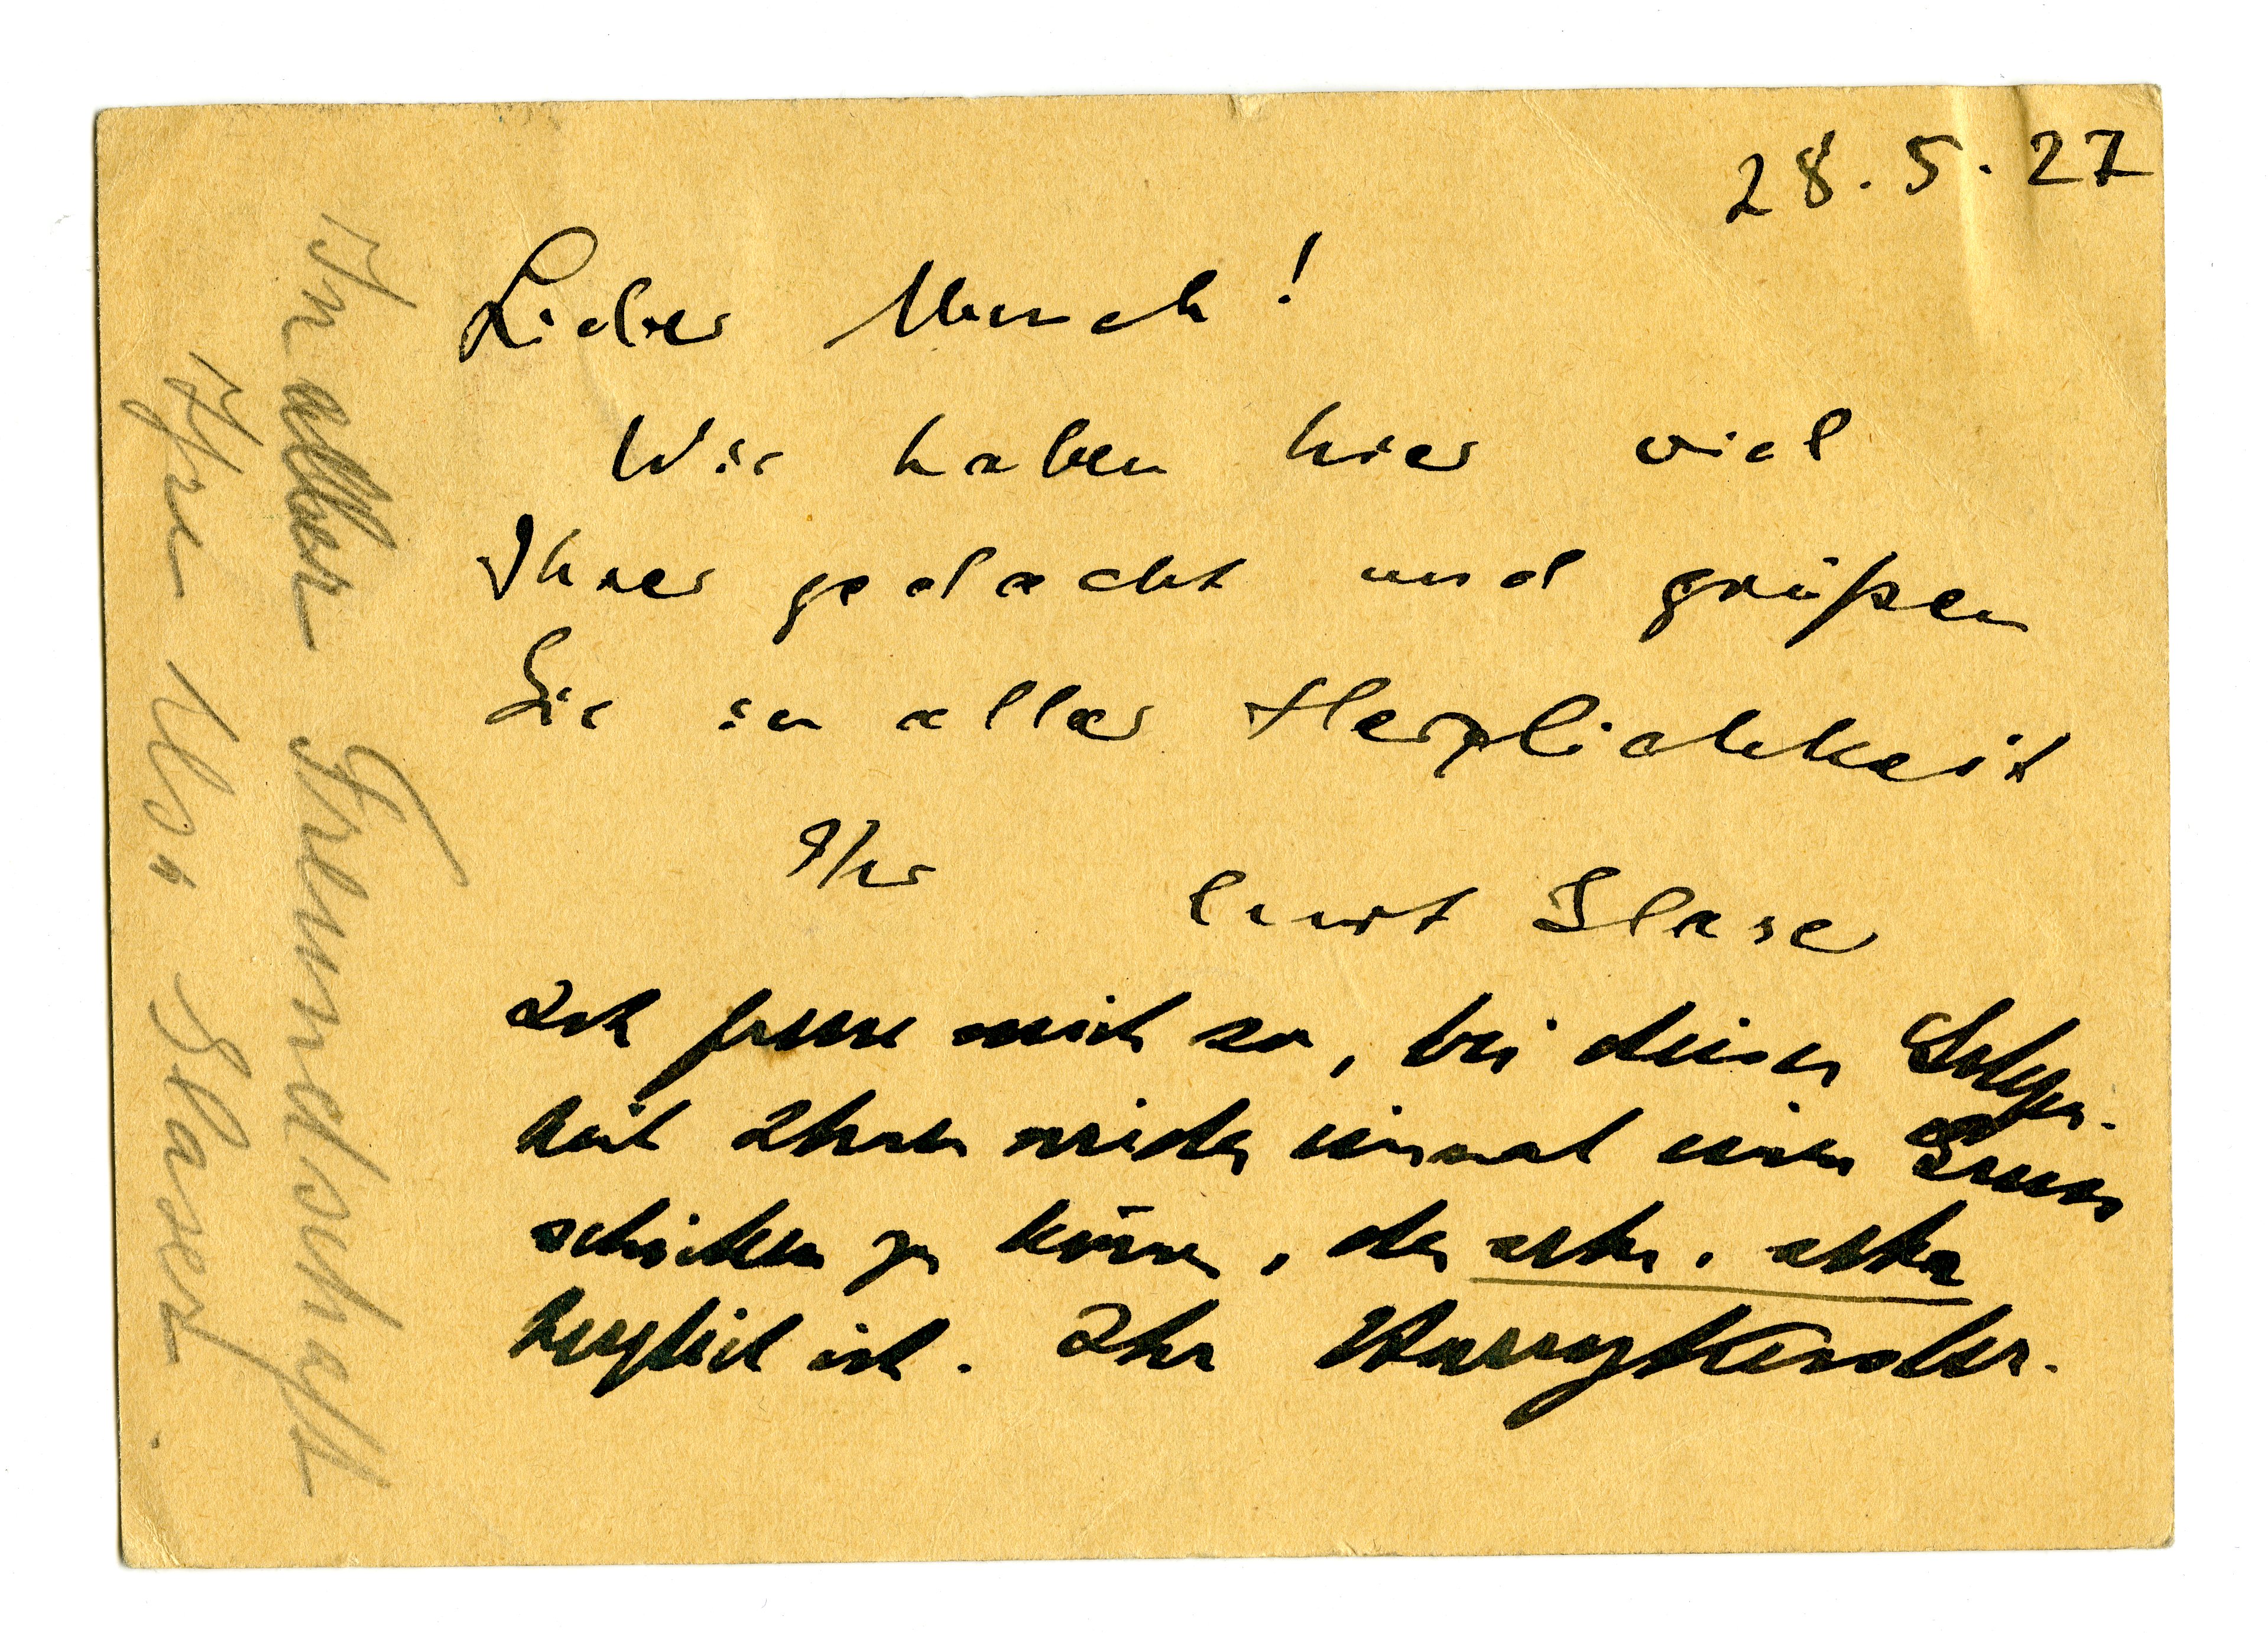 28.5.27
Lieber Munch!
Wir haben hier viel
Ihrer gedacht und grüßen
Sie in aller Herzlichkeit
Ihr Curt Glaser
Ich freue mich so, bei dieser Gelegen-
heit Ihnen wieder einmal einen Gruss
schicken zu können, der aller, aller
herzlichst ist. Ihr
In aller Freundschaft
Ihre Glaser.